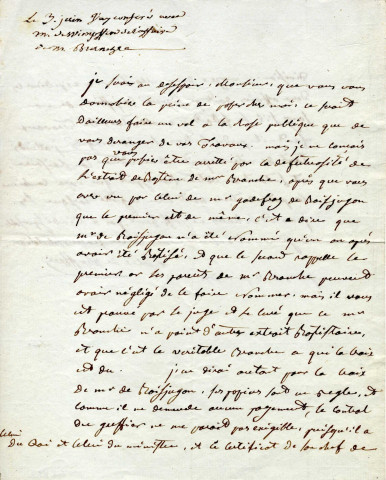 Le 3. juin j'ay conferé avec
Mr. de Wimpffen de l'affaire
de M.
je serais au desespoir, Monsieur, que vous vous
donnassiez la peine de passer chez moi; ce serait
d'ailleurs faire un vol à la chose publique que de
vous deranger de vos Travaux. mais je ne conçois
pas que vous puissiez être arrêté par la defectuosité de
l'extrait de Batême de mr Branche, après que vous
avez vu par celui de mr godefroy de Boisjugan
que le premier est de même, c'est a dire que
mr de Boisjugan n'a été nommé qu'un an après
avoir été Batisé, et que le second rappelle le
premier or les parents de mr Branche peuvent
avoir négligé de le faire nommer, mais il vous
est prouvé par le juge et le curé que ce mr
Branche n'a point d'autre extrait Batistaire,
et que c'est le veritable Branche a qui la Croix
est due. j'en dirai autant pour la Croix
de mr de Boisjugan, ses papiers sont en regle, et
comme il ne demande aucun payement, le
du greffier ne me parait pas exigible, puisqu'il a
celui
du Roi et celui du ministre, et le certificat de son chef de